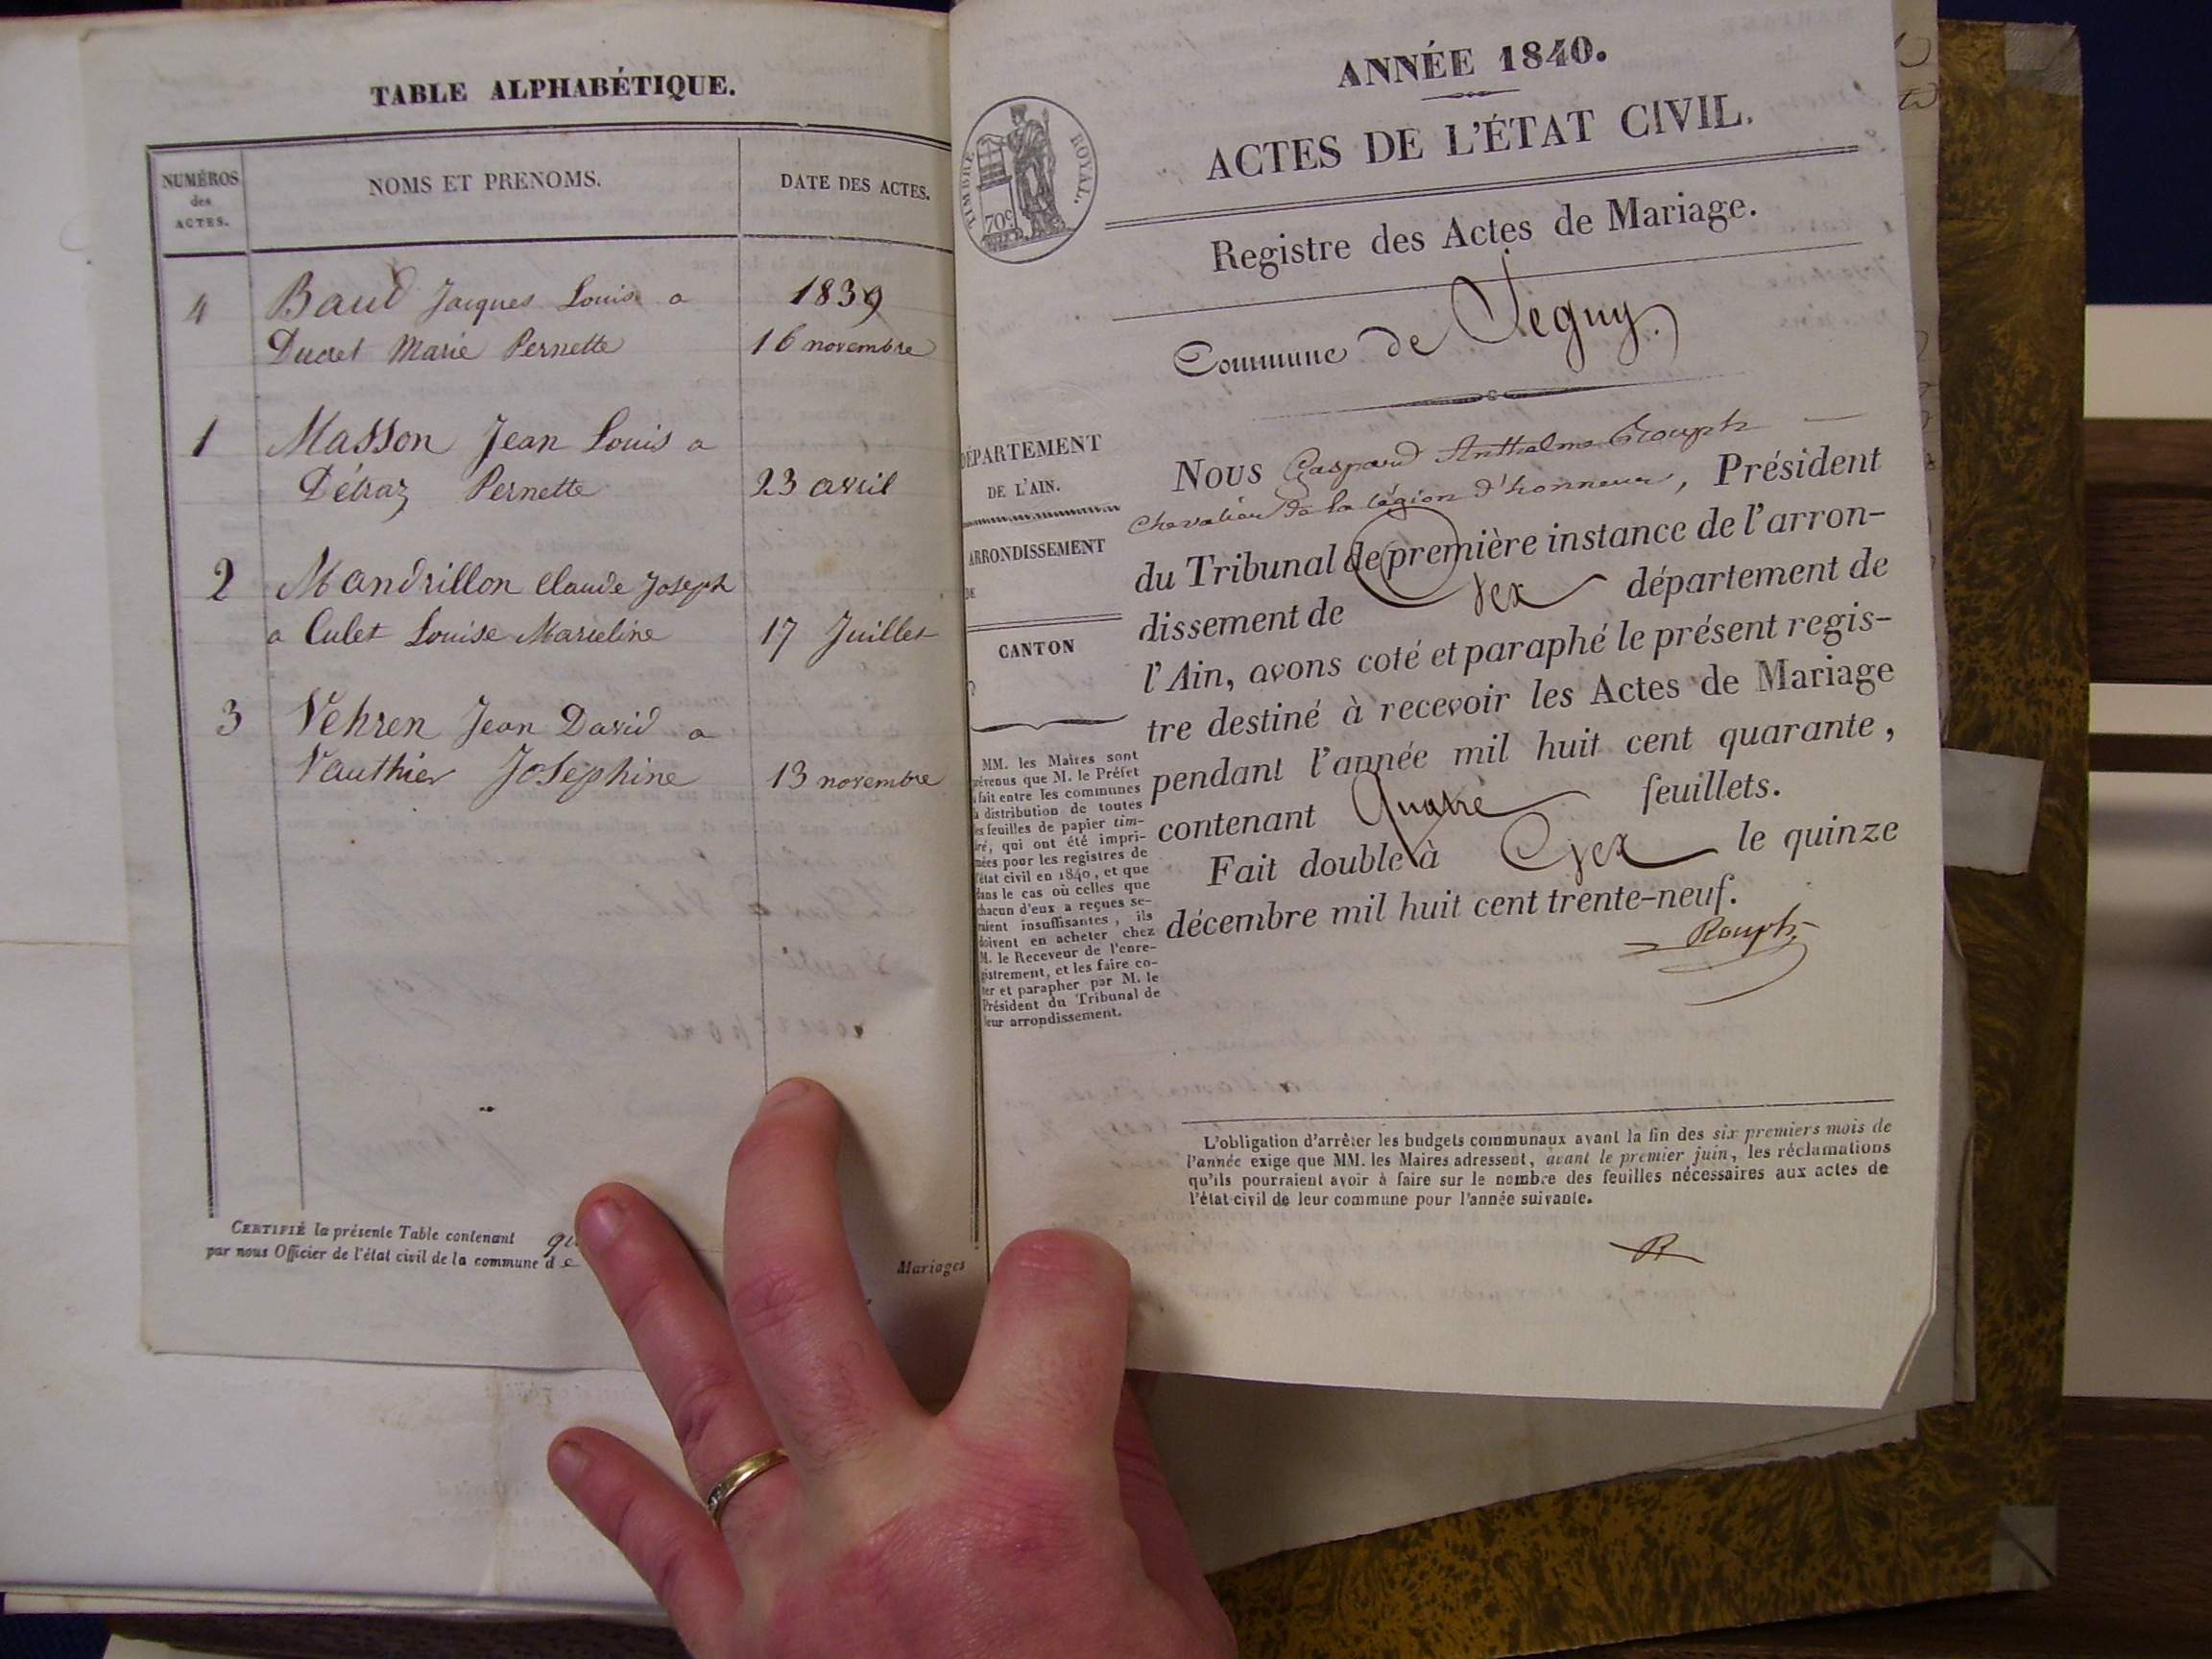 TABLE ALPHABÉTIQUE.
NUMÉROS
des
ACTES.
NOMS ET PRENOMS.
DATE DES ACTES.
4 Baud Jacques Louis a 1839
Ducret Marie Pernette 16 novembre
1 Masson Jean Louis a
Détraz Pernette 23 avril
2 Mandrillon Claude Joseph
a Culet Louise Marieline 17 Juillet
3 Vehren Jean David a
Vauthier Josephine 13 novembre
CERTIFIÉ la présente Table contenant
par nous Officier de l'état civil de la commune de
Mariages
ANNÉE 1840.
TIMBRE ROYAL.
70c
ACTES DE L'ÉTAT CIVIL.
Registre des Actes de Mariage.
Commune de Segny.
DÉPARTEMENT
DE L'AIN.
ARRONDISSEMENT
DE
CANTON
MM. les Maires sont
prévenus que M. le Préfet
a fait entre les communes
la distribution de toutes
les feuilles de papier tim-
bré, qui ont été impri-
mées pour les registres de
l'état civil en 1840, et que
dans le cas où celles que
chacun d'eux a reçues se-
raient insuffisantes, ils
doivent en acheter chez
M. le Receveur de l'enre-
gistrement, et les faire co-
ter et parapher par M. le
Président du Tribunal de
leur arrondissement.
Nous Gaspard Anthelme Rouph
Chevalier de la légion d'honneur, Président
du Tribunal de première instance de l'arron-
dissement de Gex département de
l'Ain, avons coté et paraphé le présent regis-
tre destiné à recevoir les Actes de Mariage
pendant l'année mil huit cent quarante,
contenant Quatre feuillets.
Fait double à Gex le quinze
décembre mil huit cent trente-neuf.
Rouph
L'obligation d'arrêter les budgets communaux avant la fin des six premiers mois de
l'année exige que MM. les Maires adressent, avant le premier juin, les réclamations
qu'ils pourraient avoir à faire sur le nombre des feuilles nécessaires aux actes de
l'état civil de leur commune pour l'année suivante.
R